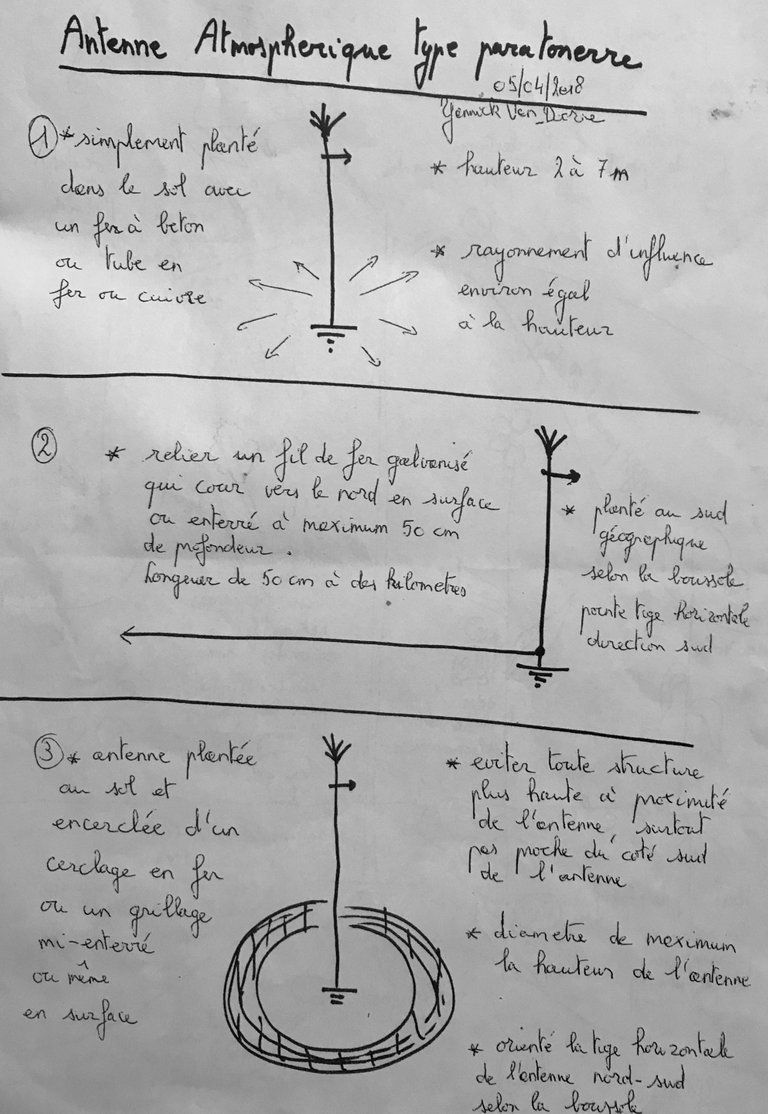 Antenne Atmospherique type paratonerre
05/04/2018
Yannick Van Doorne
① * simplement planté
dans le sol avec
un fer à beton
ou tube en
fer ou cuivre
* hauteur 2 à 7m
* rayonnement d'influence
environ égal
à la hauteur
② * relier un fil de fer galvanisé
qui cour vers le nord en surface
ou enterré à maximum 50 cm
de profondeur.
Longeuer de 50 cm à des kilometres
* planté au sud
géographique
selon la boussole
pointe tige horizontale
direction sud
③ * antenne plantée
au sol et
encerclée d'un
cerclage en fer
ou un grillage
mi-enterré
ou même
en surface
* eviter toute structure
plus haute à proximité
de l'antenne, surtout
pas proche du coté sud
de l'antenne
* diametre de maximum
la hauteur de l'antenne
* orienté la tige horizontale
de l'antenne nord-sud
selon la boussole